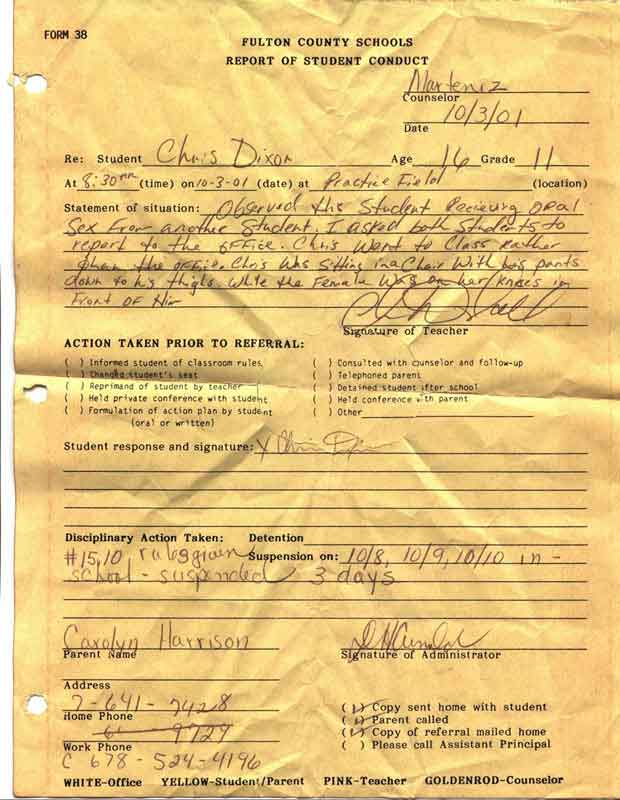 FORM 38
FULTON COUNTY SCHOOLS
REPORT OF STUDENT CONDUCT
Marteniz
Counselor
10/3/01
Date
Re: Student Chris Dixon Age 16 Grade 11
At 8:30 (time) on 10-3-01 (date) at Practice Field (location)
Statement of situation: Observed this Student Recieving oral
Sex From another Student. I asked both Students to
report to the office. Chris Went to Class Rather
than the office. Chris Was Sitting in a Chair With his pants
down to his thighs while the Female Was on her knees in
Front OF Him
Signature of Teacher
ACTION TAKEN PRIOR TO REFERRAL:
( ) Informed student of classroom rules. ( ) Consulted with counselor and follow-up
( ) Changed student's seat ( ) Telephoned parent
( ) Reprimand of student by teacher ( ) Detained student after school
( ) Held private conference with student ( ) Held conference with parent
( ) Formulation of action plan by student ( ) Other
(oral or written)
Student response and signature: X Chris Dixon
Disciplinary Action Taken: Detention
#15,10, rules given Suspension on: 10/8, 10/9, 10/10 in-
school - suspended 3 days
Carolyn Harrison
Parent Name Signature of Administrator
Address
7-641-7428 (✓) Copy sent home with student
Home Phone (✓) Parent called
9729 (✓) Copy of referral mailed home
Work Phone ( ) Please call Assistant Principal
C 678-524-4196
WHITE-Office YELLOW-Student/Parent PINK-Teacher GOLDENROD-Counselor